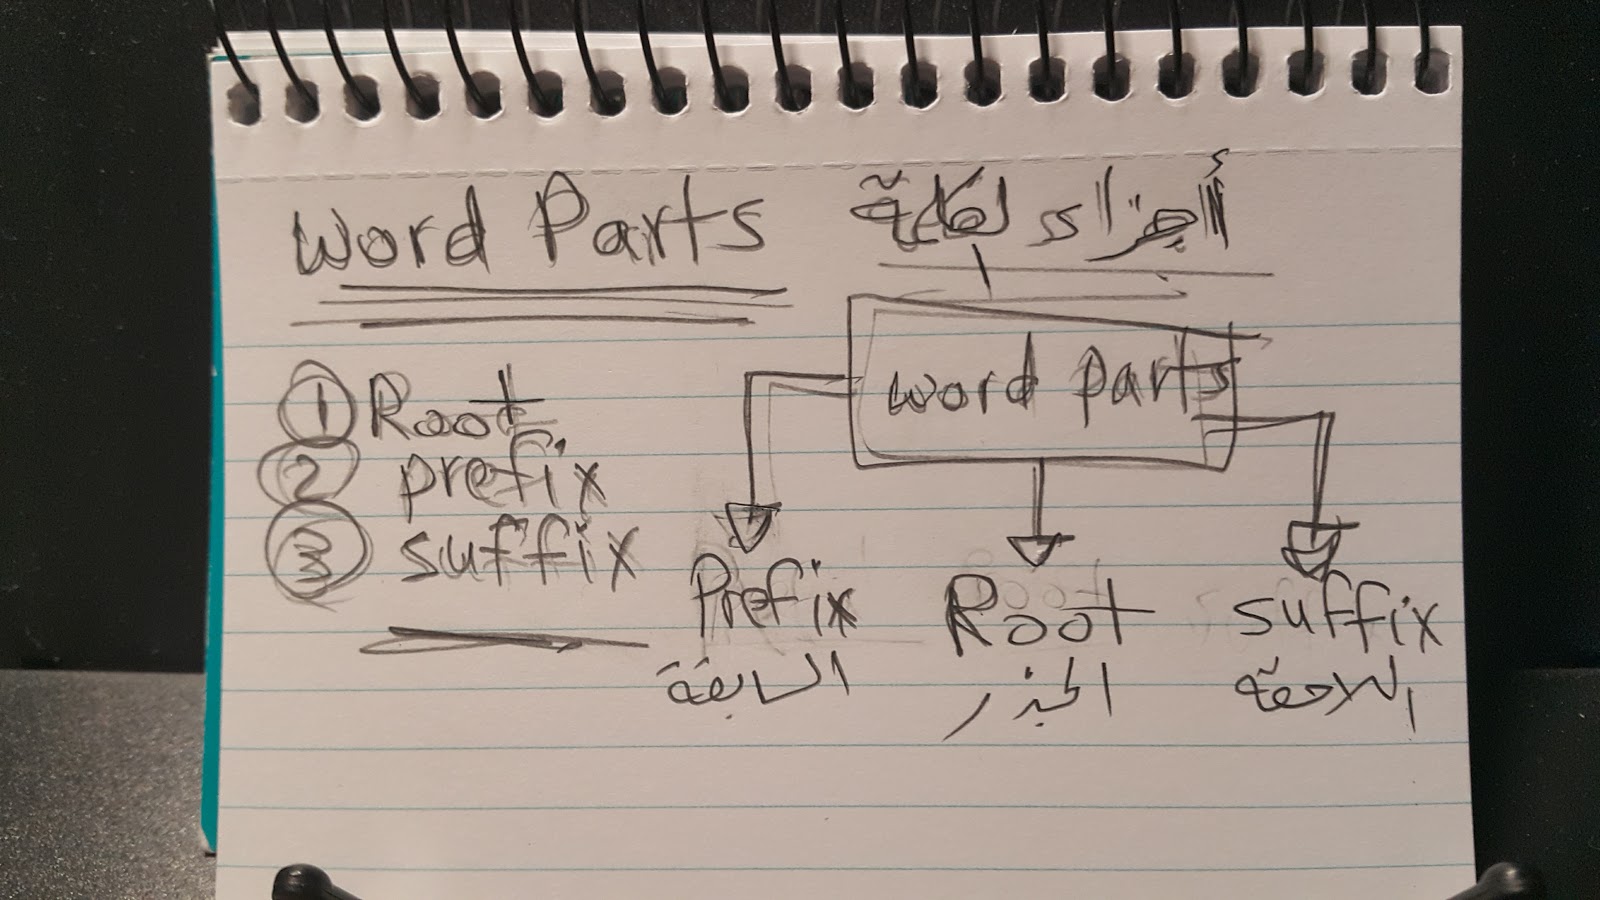 Word Parts أجزاء الكلمة
① Root
② prefix
③ suffix
word parts
Prefix Root suffix
السابقة الجذر اللاحقة